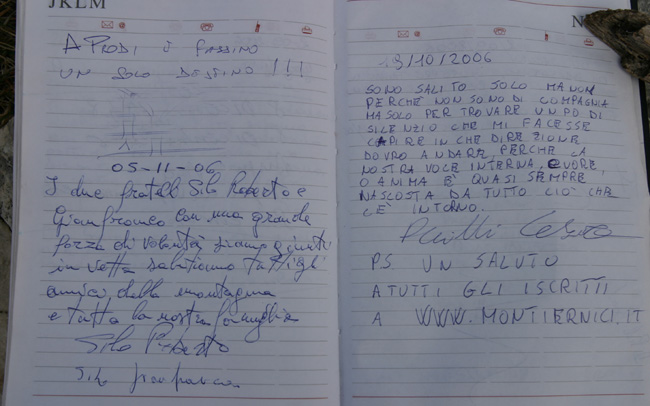 JKLM
A PRODI E FASSINO
UN SOLO DESTINO!!!
05-11-06
I due fratelli Silo Roberto e
Gianfranco con una grande
forza di volontà siamo giunti
in vetta salutiamo tutti gli
amici della montagna
e tutta la nostra famiglia
Silo Roberto
Silo Gianfranco
N
13/10/2006
SONO SALITO SOLO MA NON
PERCHÈ NON SONO DI COMPAGNIA
MA SOLO PER TROVARE UN PO DI
SILENZIO CHE MI FACESSE
CAPIRE IN CHE DIREZIONE
DOVRO ANDARE, PERCHE LA
NOSTRA VOCE INTERNA, CUORE,
O ANIMA È QUASI SEMPRE
NASCOSTA DA TUTTO CIO' CHE
C'È INTORNO.
P.S. UN SALUTO
A TUTTI GLI ISCRITTI
A WWW.MONTIERNICI.IT